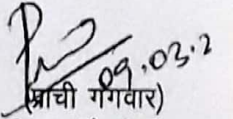 09.03.2
(प्राची गंगवार)